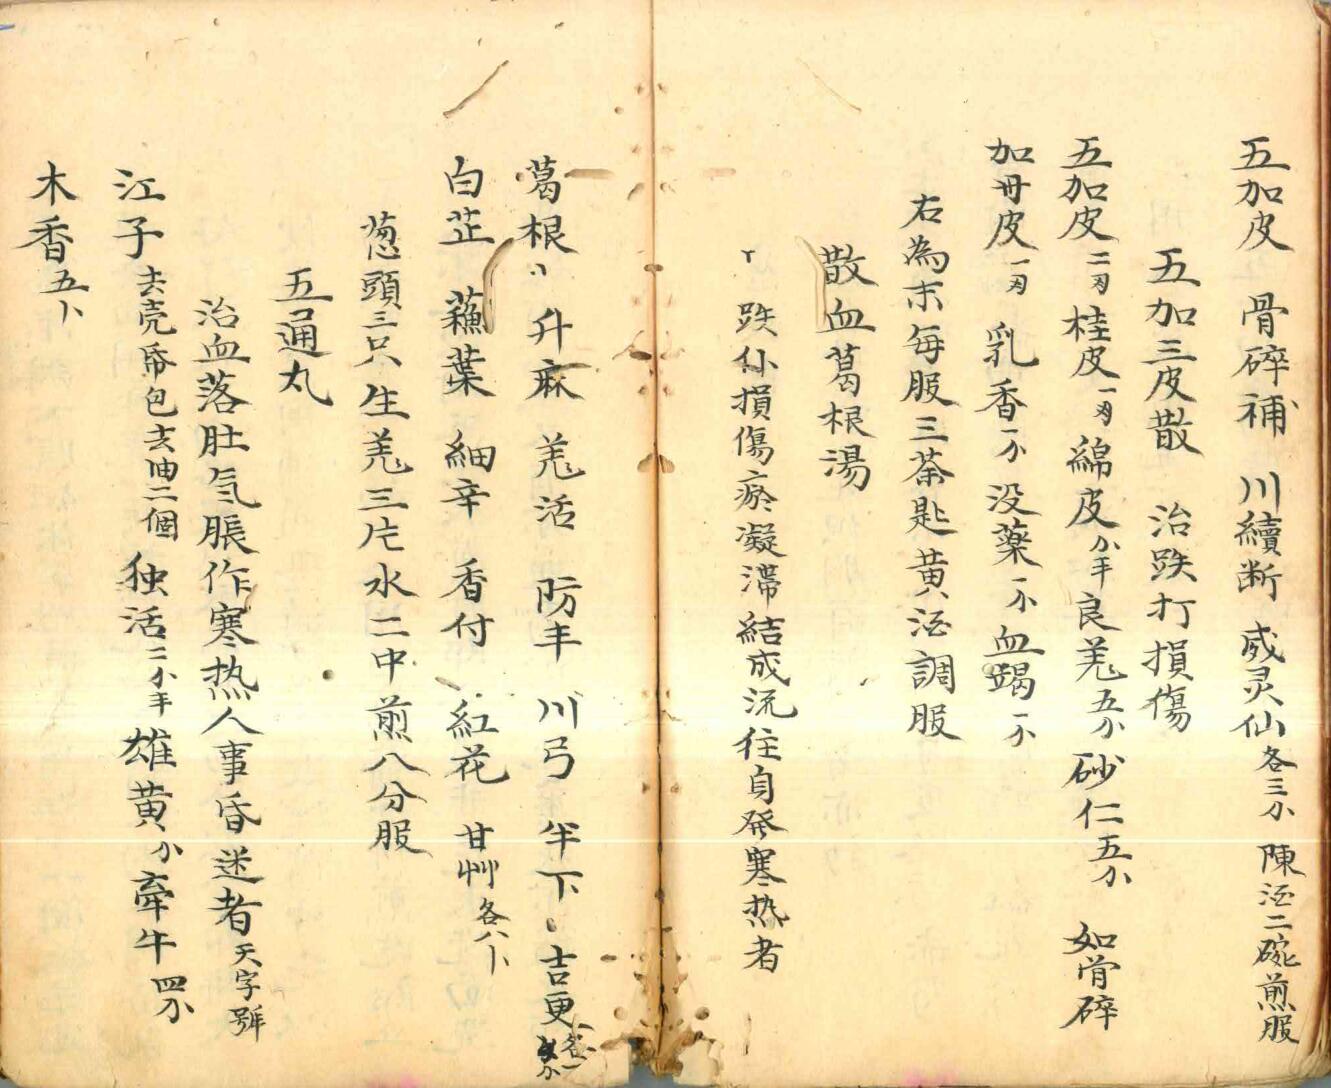 五加皮 骨碎補 川續断 威灵仙各三分 陳酒二碗煎服
五加三皮散 治跌打損傷
五加皮二刃桂皮一刃綿皮分半良羗五分砂仁五分 如骨碎
加丹皮一刃 乳香一分没藥一分血蝎一分
右為末每服三茶匙黄酒調服
散血葛根湯
跌仆損傷瘀凝滯結成流往自發寒热者
葛根 升麻 羗活 防丰 川弓 半下 吉更
白芷 蘓葉 細辛 香付 紅花 甘艸各八卜
葱頭三只生羗三片水二中煎八分服
五通丸
治血落肚気脹作寒热人事昏迷者天字號
江子去壳帋包去油二個 独活二分半雄黄分牽牛四分
木香五卜